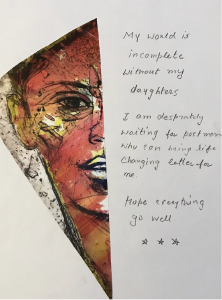 My world is
incomplete
without my
daughters
I am despirately
waiting for postman
who can bring life
changing letter for
me.
Hope everything
go well